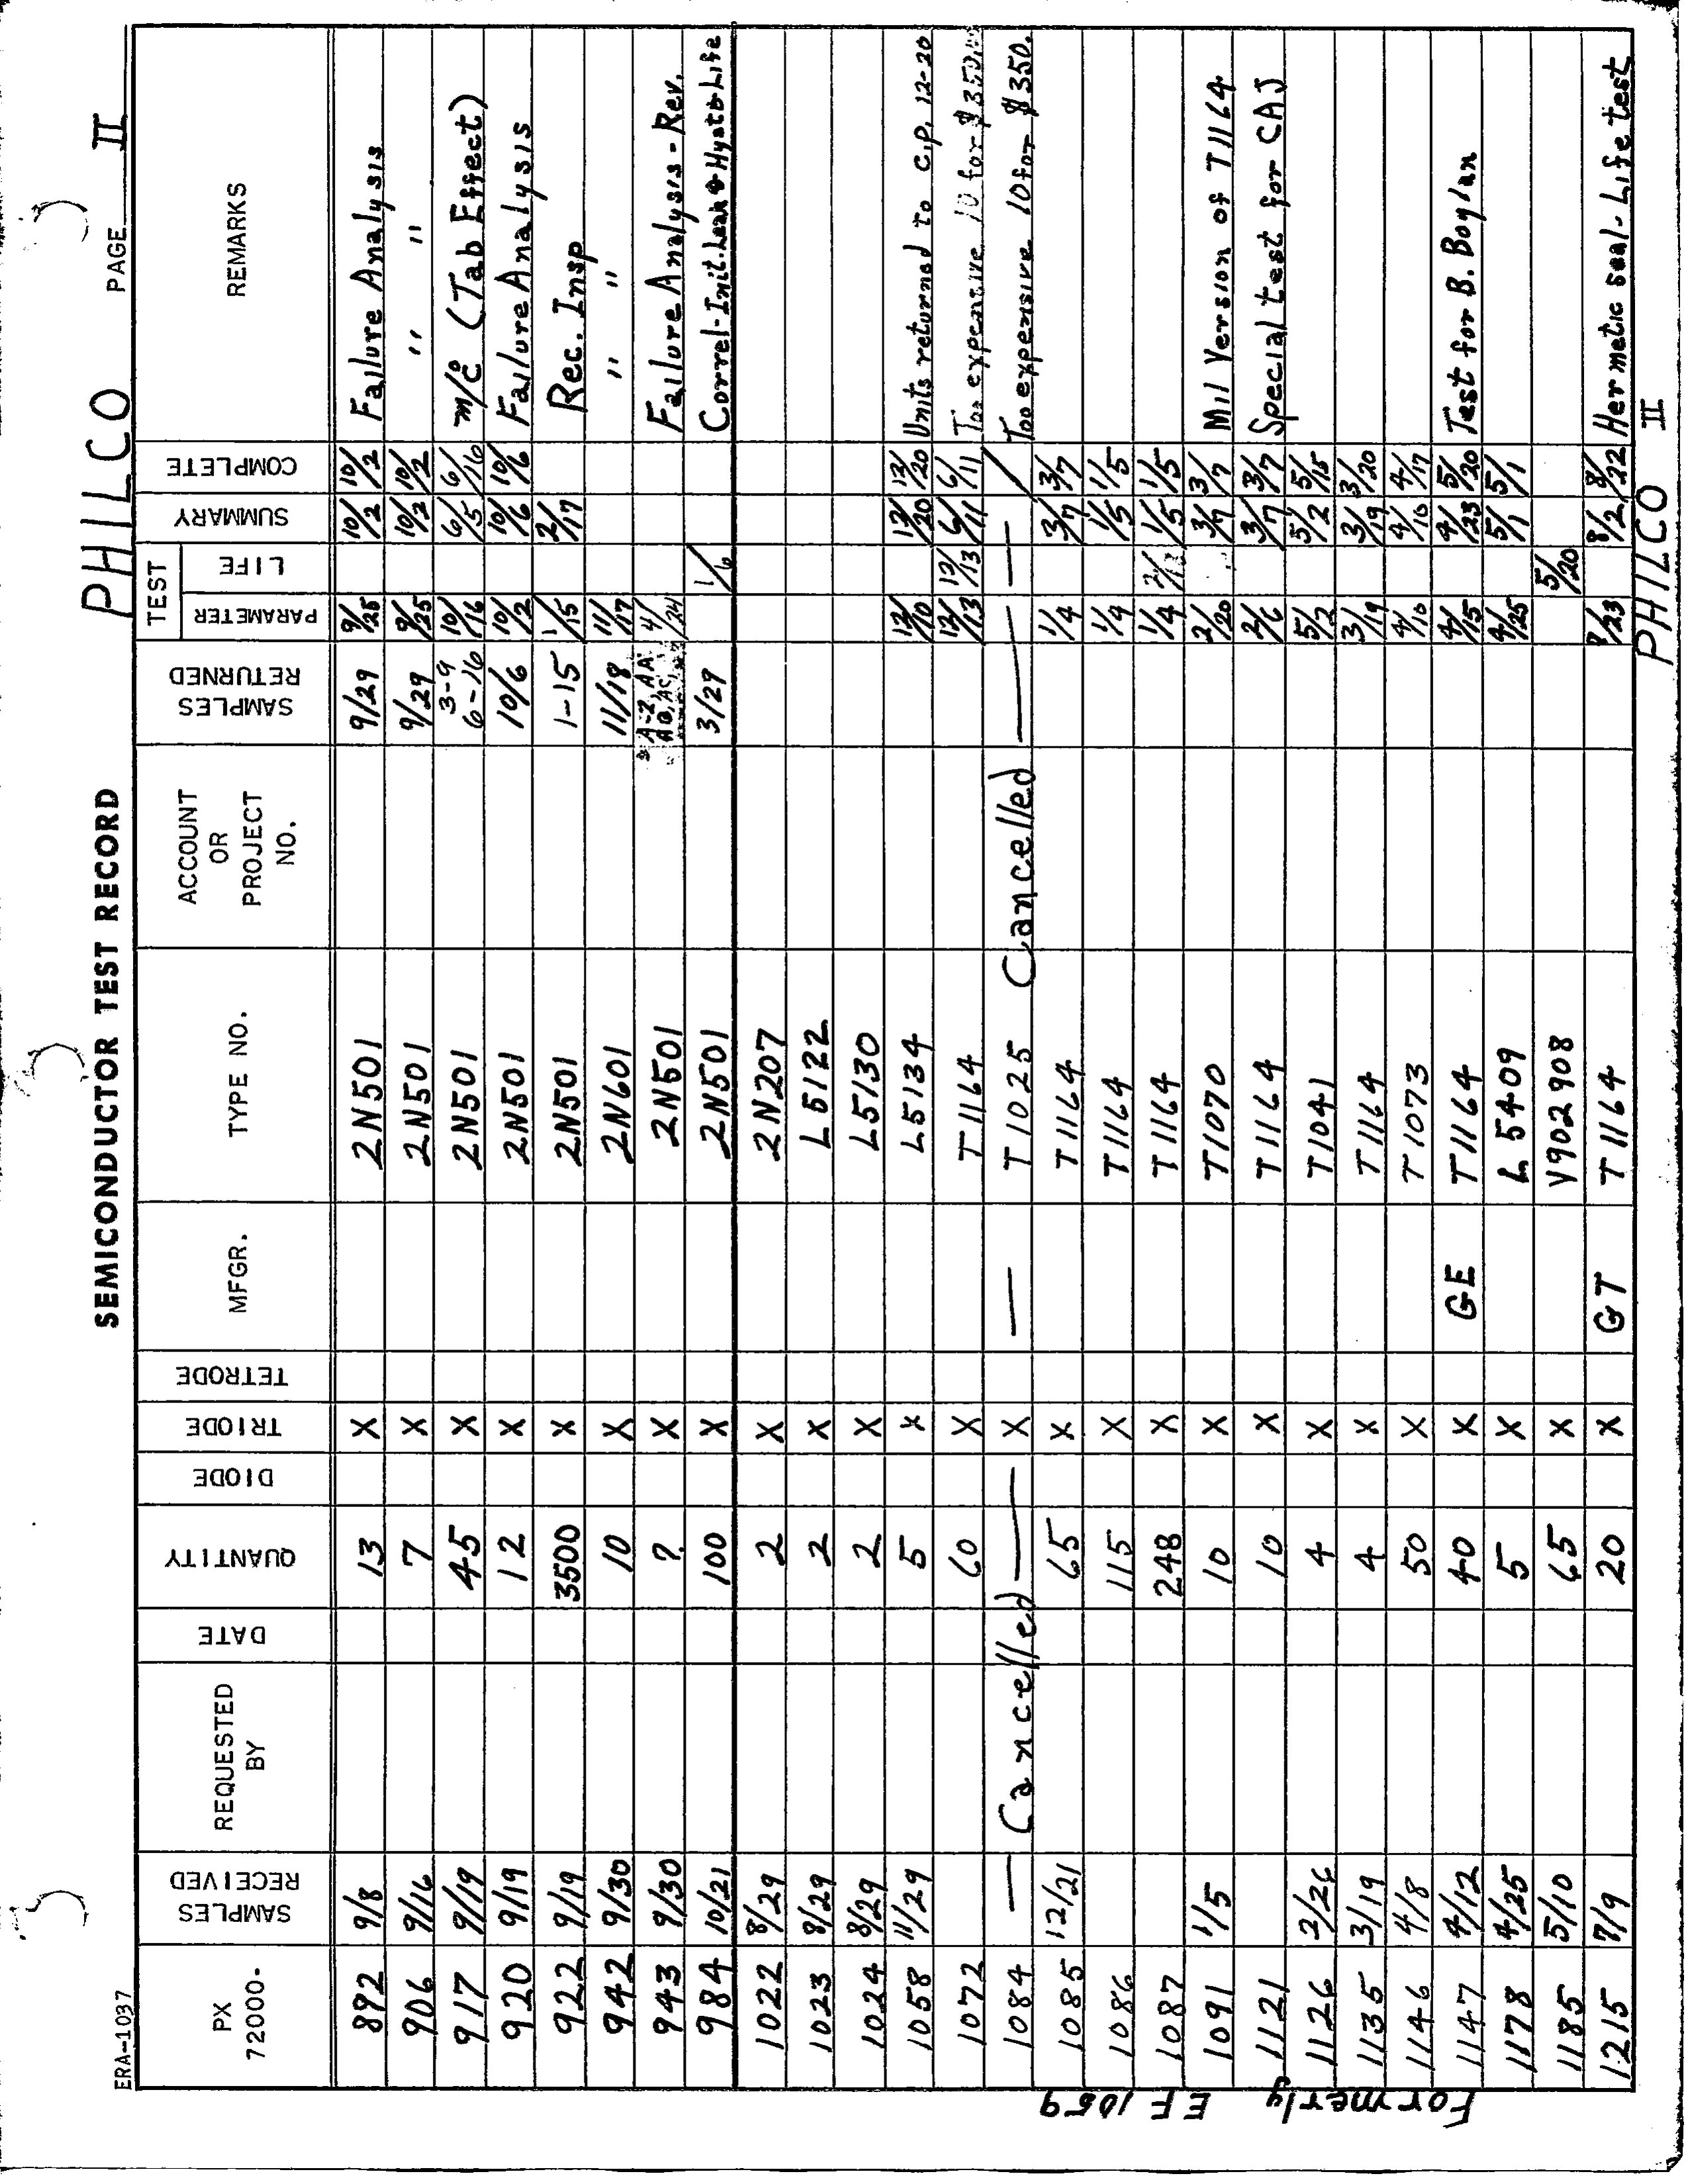 PHILCO
SEMICONDUCTOR TEST RECORD
PAGE II
ERA-1037
PX 72000- SAMPLES RECEIVED REQUESTED BY DATE QUANTITY DIODE TRIODE TETRODE MFGR. TYPE NO. ACCOUNT OR PROJECT NO. SAMPLES RETURNED TEST PARAMETER LIFE SUMMARY COMPLETE REMARKS
892 9/8 13 X 2N501 9/29 9/25 10/2 10/2 Failure Analysis
906 9/16 7 X 2N501 9/29 9/25 10/2 10/2 " "
917 9/19 45 X 2N501 3-9 6-16 10/16 6/5 6/16 M/C (Tab Effect)
920 9/19 12 X 2N501 10/6 10/2 10/6 10/6 Failure Analysis
922 9/19 3500 X 2N501 1-15 1/15 2/17 Rec. Insp
942 9/30 10 X 2N601 11/18 11/17 " "
943 9/30 ? X 2N501 4/24 Failure Analysis-Rev.
984 10/21 100 X 2N501 3/29 1/6 Correl-Init. Leak & Hyst & Life
1022 8/29 2 X 2N207
1023 8/29 2 X L5122
1024 8/29 2 X L5130
1058 11/29 5 X L5134 12/10 12/20 12/20 Units returned to C.P. 12-20
1072 60 X T1164 12/13 12/13 6/11 6/11 Too expensive 10 for $350.
1084 — Cancelled — X — T1025 Cancelled — — — / Too expensive 10 for $350.
1085 12/21 65 X T1164 1/4 3/7 3/7
1086 115 X T1164 1/4 1/5 1/5
1087 248 X T1164 1/4 1/5 1/5
1091 1/5 10 X T1070 2/20 3/7 3/7 Mil Version of T1164
1121 10 X T1164 2/6 3/7 3/7 Special test for CAJ
1126 2/26 4 X T1041 5/2 5/2 5/15
1135 3/19 4 X T1164 3/19 3/19 3/20
1146 4/8 50 X T1073 4/10 4/10 4/17
1147 4/12 40 X GE T1164 4/15 4/23 5/20 Test for B. Boylan
1178 4/25 5 X L5409 4/25 5/1 5/1
1185 5/10 65 X V902908 5/20
1215 7/9 20 X GT T1164 8/23 8/2 8/22 Hermetic seal-Life test
Formerly EF 1059
PHILCO II